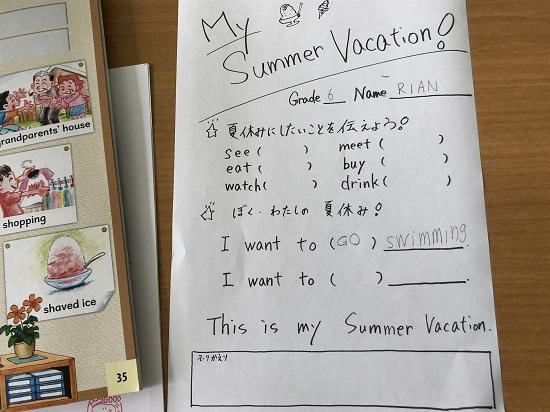 My
Summer Vacation!
Grade 6 Name RIAN
☆ 夏休みにしたいことを伝えよう!
see ( ) meet ( )
eat ( ) buy ( )
watch ( ) drink ( )
☆ ぼく・わたしの夏休み!
I want to (GO) swimming.
I want to ( )
This is my Summer Vacation.
ふりかえり
randparents' house
shopping
shaved ice
35